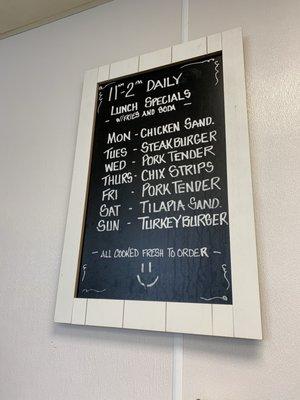 11AM-2PM DAILY
LUNCH SPECIALS
- W/FRIES AND SODA -
MON - CHICKEN SAND.
TUES - STEAKBURGER
WED - PORK TENDER
THURS - CHIX STRIPS
FRI - PORK TENDER
SAT - TILAPIA SAND.
SUN - TURKEYBURGER
- ALL COOKED FRESH TO ORDER -